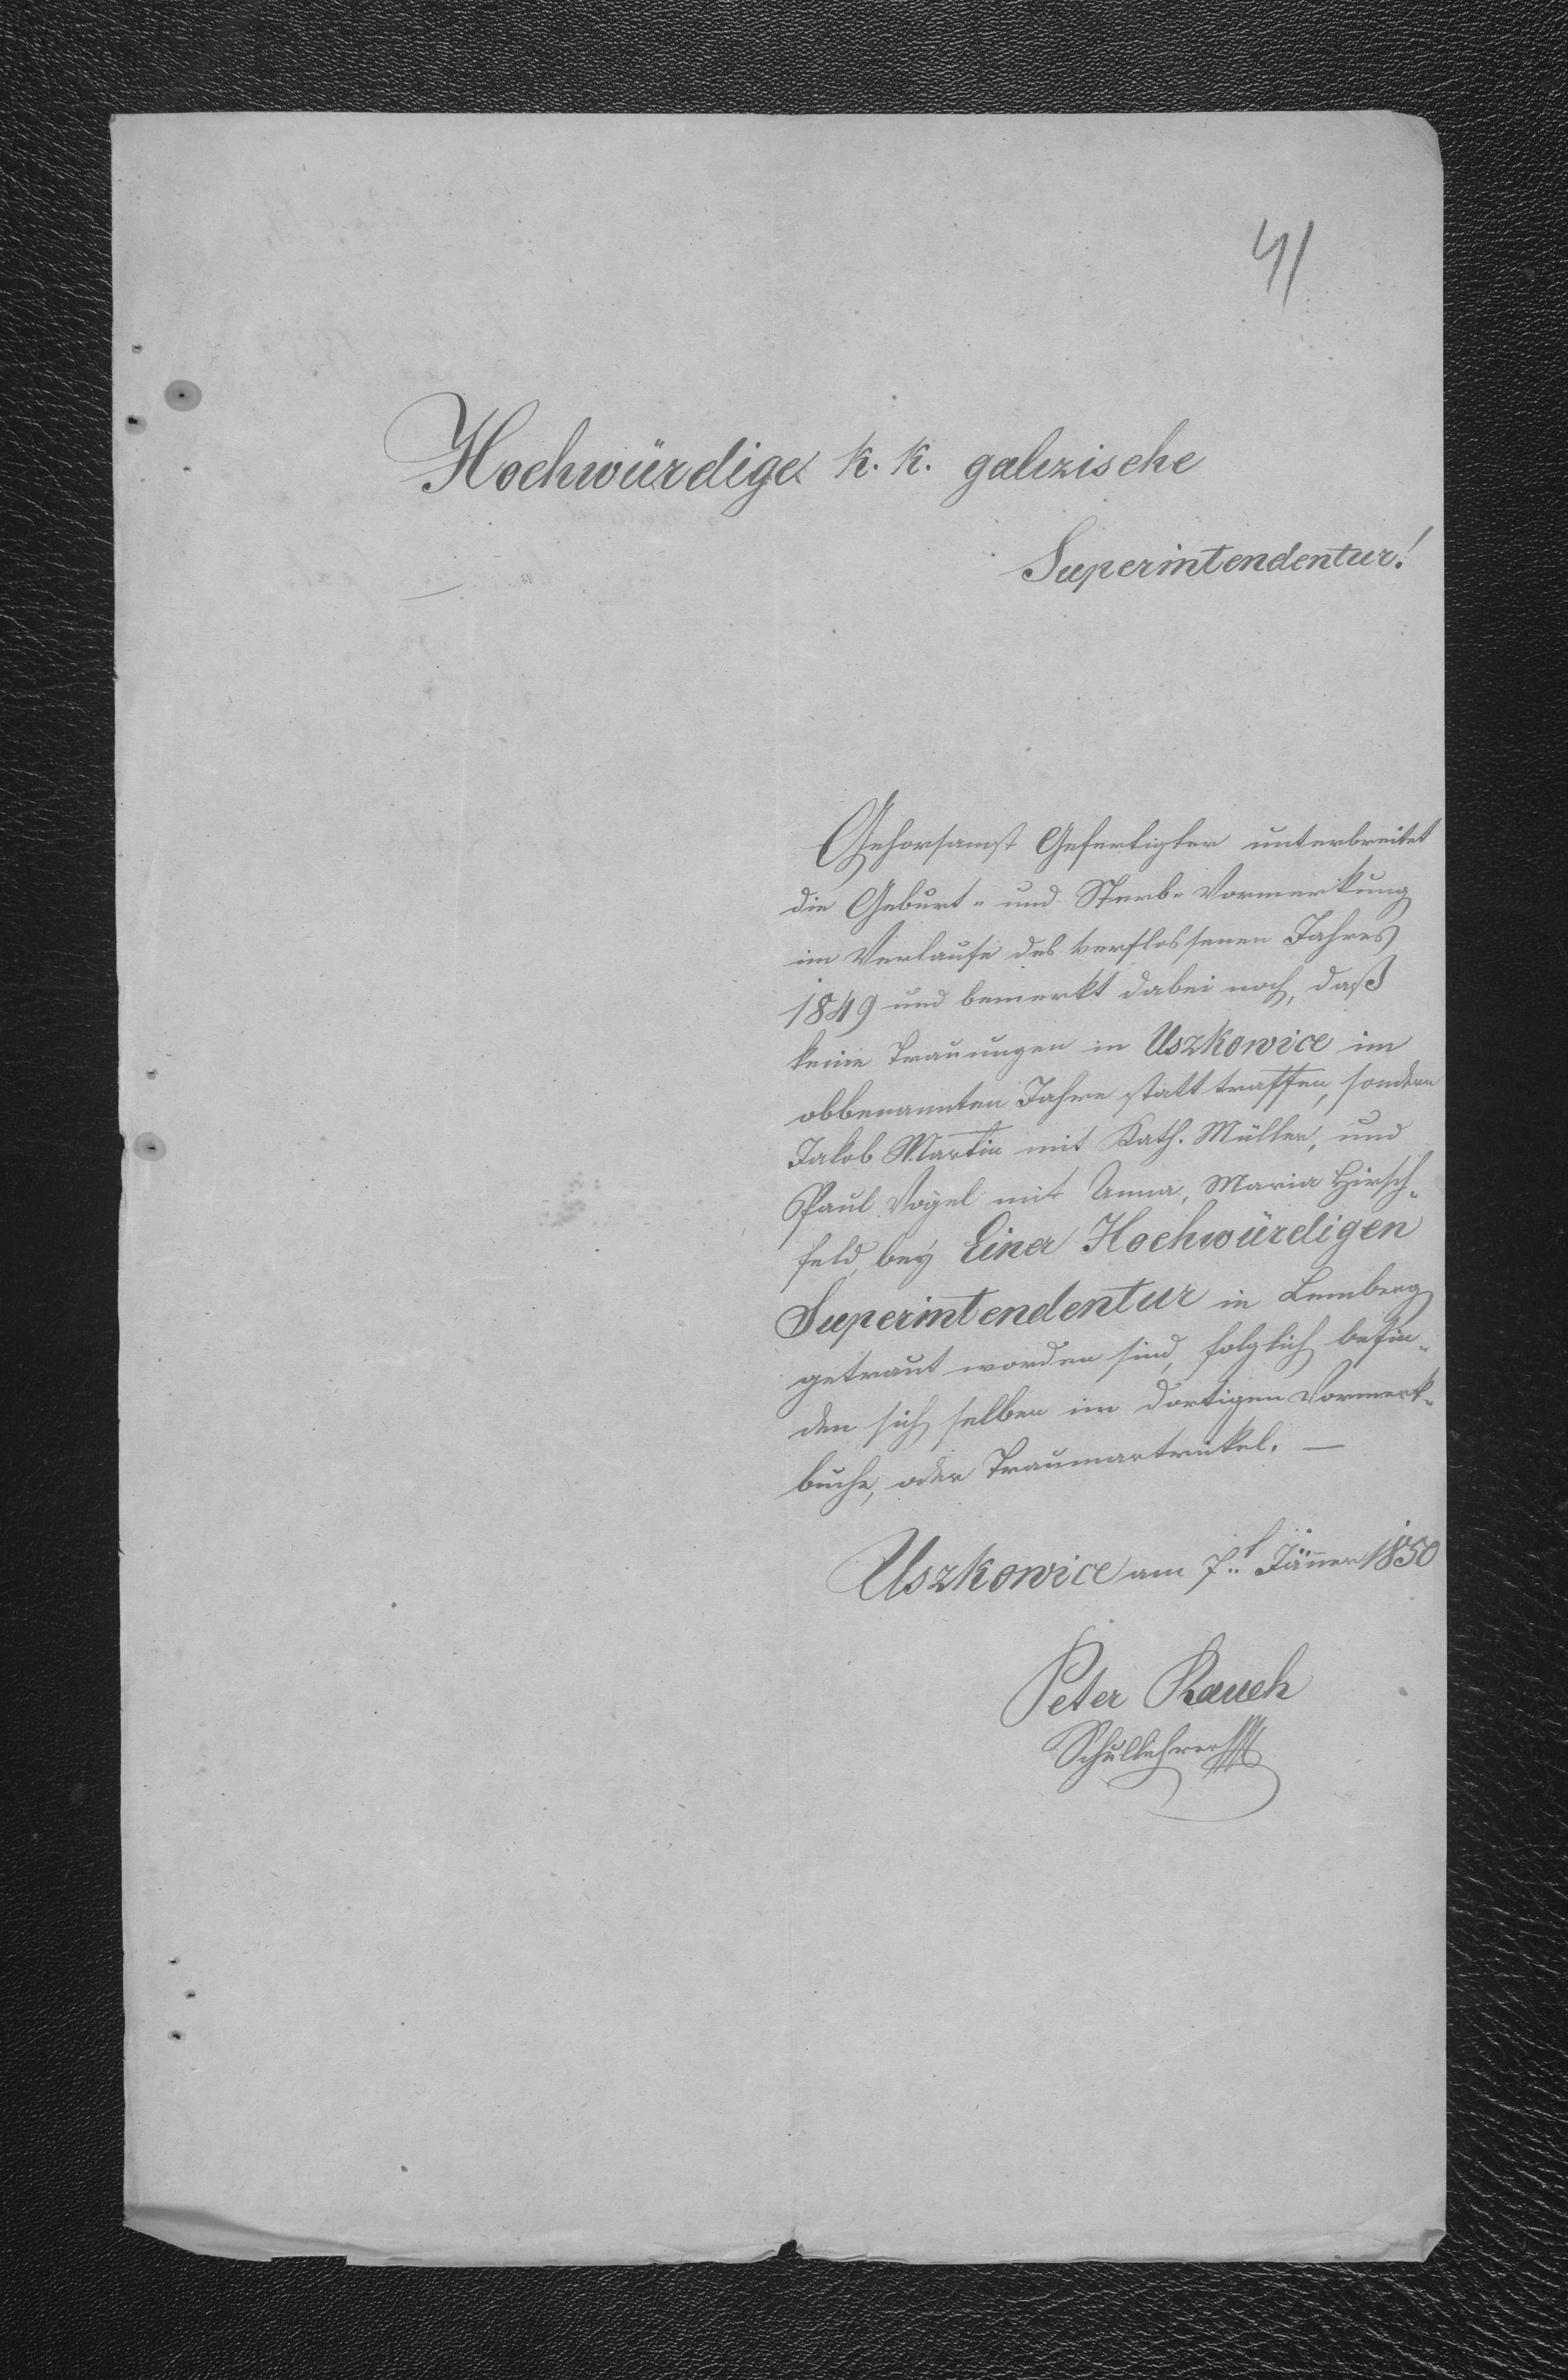 41
Hochwürdige k. k. galizische
Superintendentur!
Gehorsamst Gefertigter unterbreitet
die Geburt- und Sterb-Vormerkung
im Verlaufe des verflossenen Jahres
1849 und bemerkt dabei noch, daß
keine Trauungen in Uszkowice im
obbenannten Jahre statt traffen, sondern
Jakob Martin mit Kath. Müller, und
Paul Vogel mit Anna, Maria Hirsch-
feld, bey Einer Hochwürdigen
Superintendentur in Lemberg
getraut worden sind, folglich befin-
den sich selben im dortigen Vormerk-
buche, oder Traumartrickel. —
Uszkowice am 7. Jänner 1850
Peter Rauch
Schullehrer